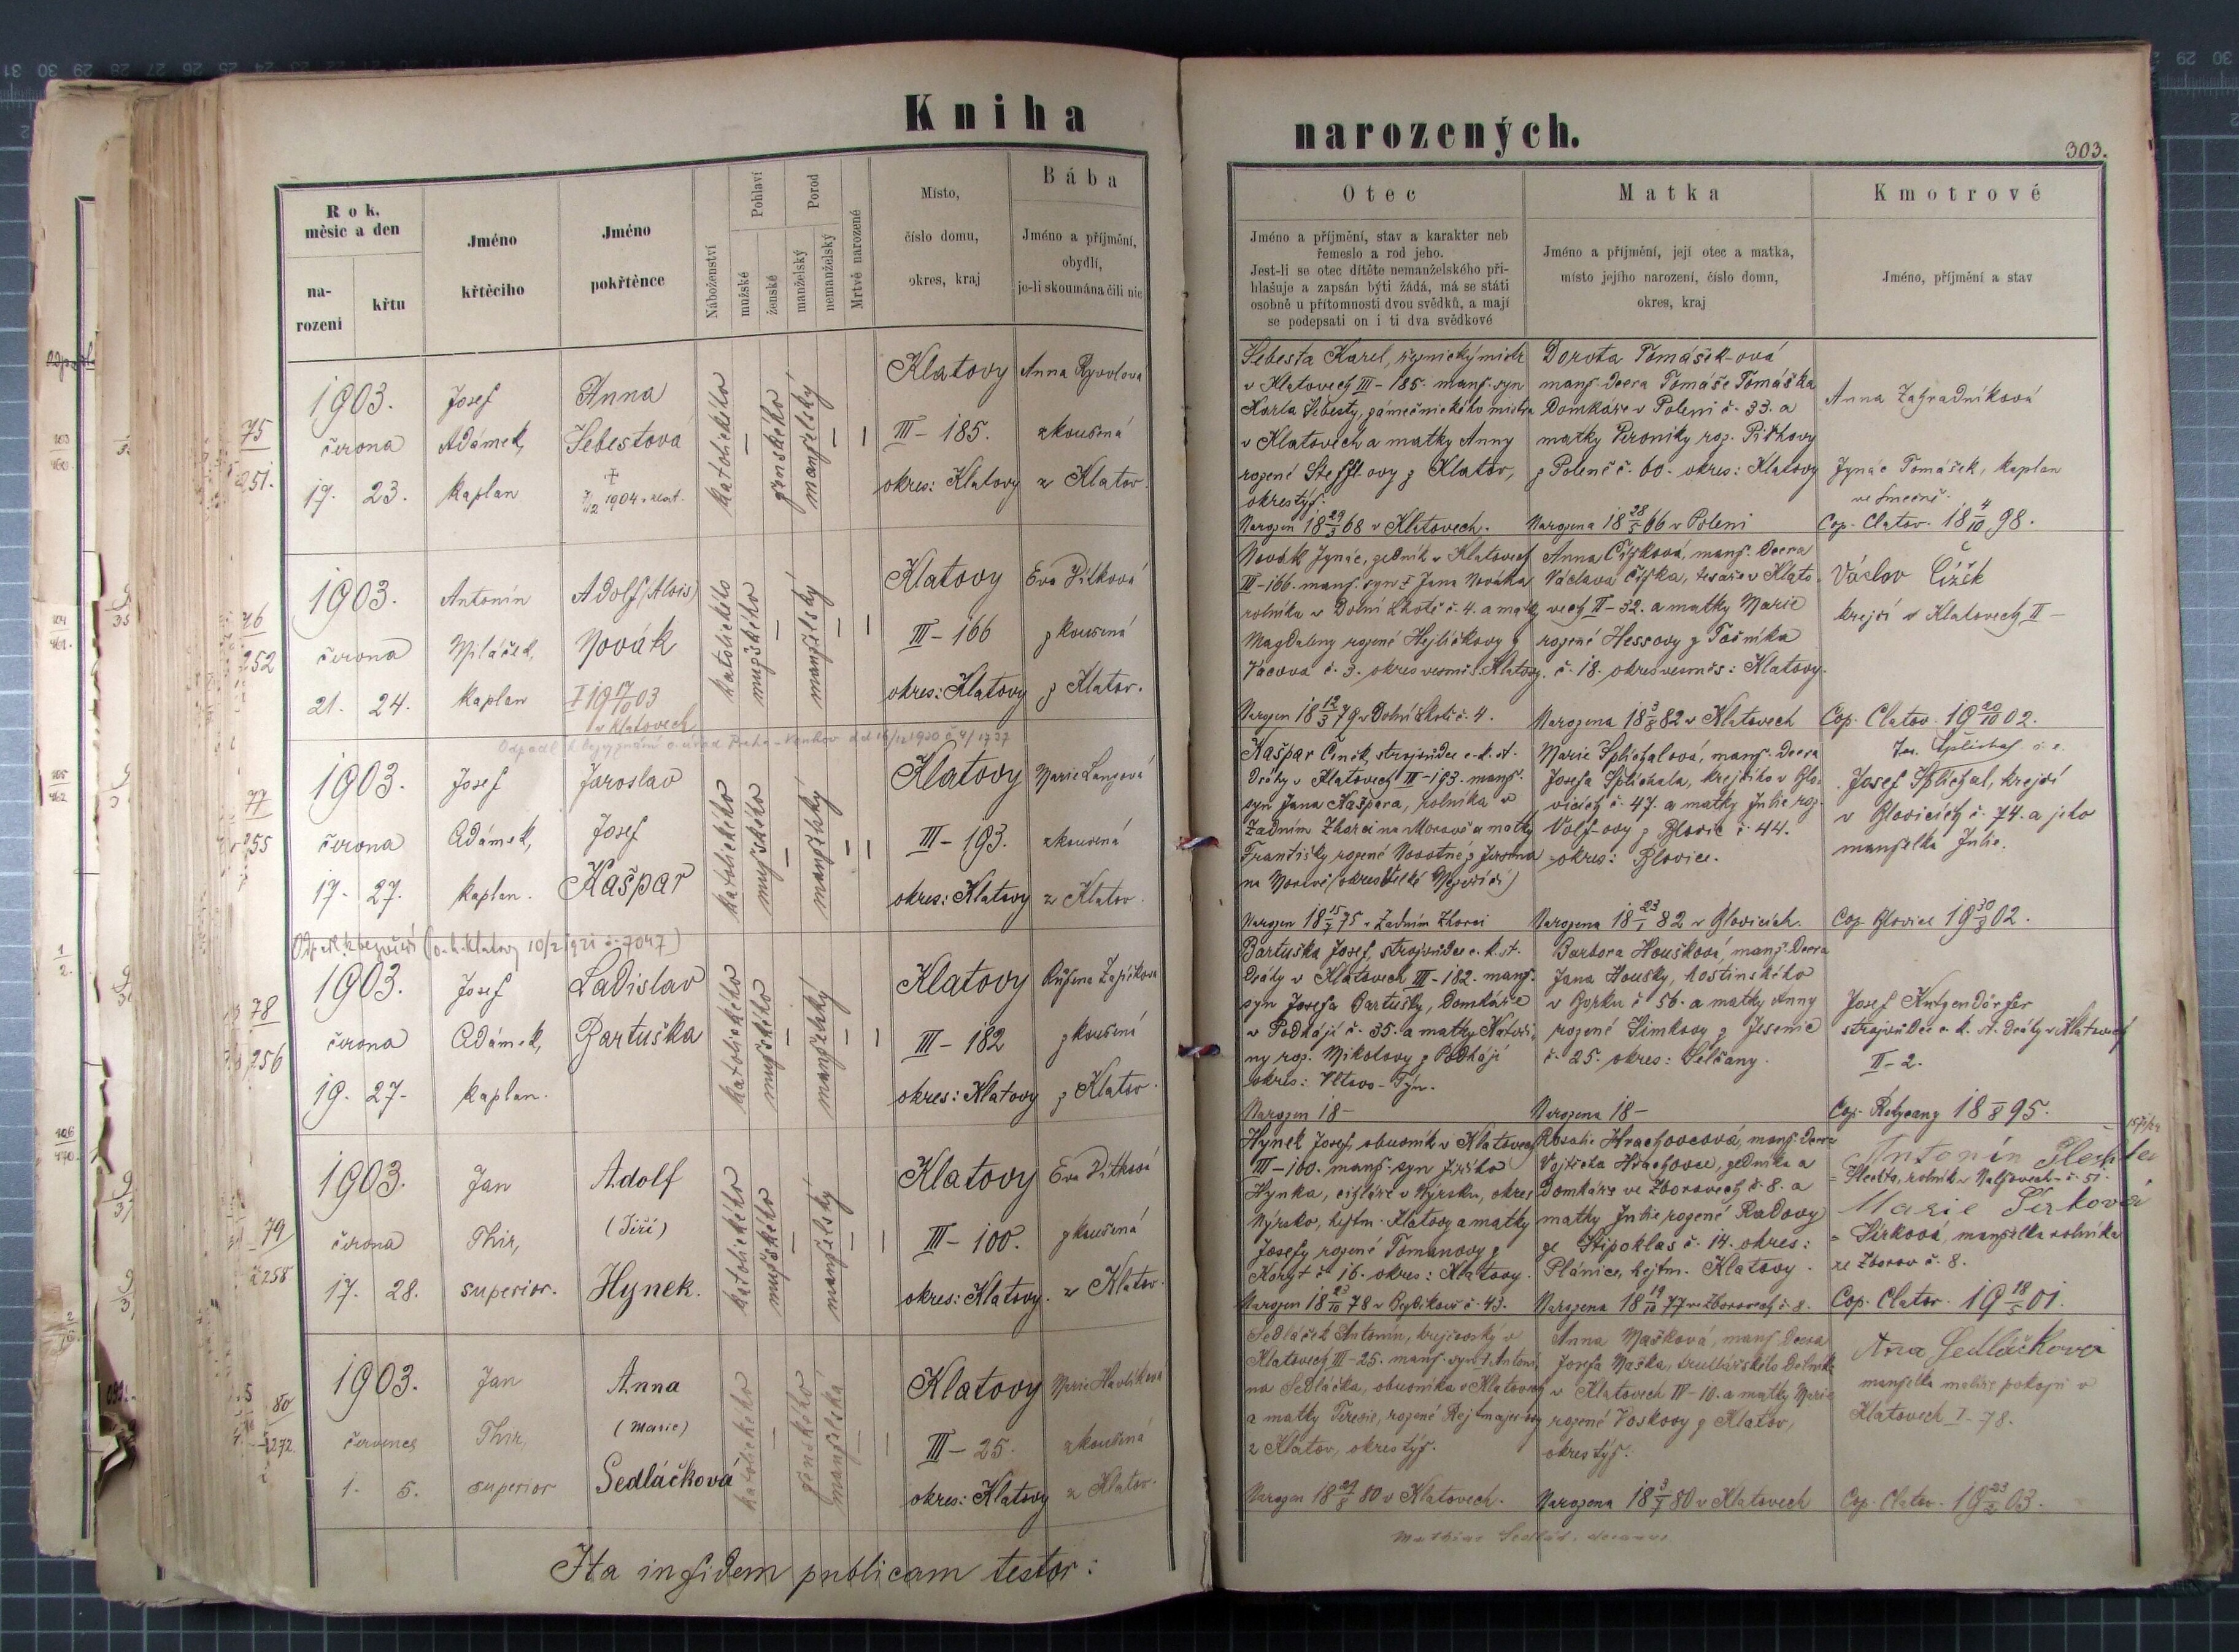 Kniha
narozených.
303.
Rok, měsíc a den
na-
rození
křtu
Jméno
křtěcího
Jméno
pokřtěnce
Náboženství
Pohlaví
mužské
ženské
Porod
manželský
nemanželský
Mrtvě narozené
Místo,
číslo domu,
okres, kraj
Bába
Jméno a příjmění,
obydlí,
je-li skoumána čili nic
Otec
Jméno a příjmění, stav a karakter neb
řemeslo a rod jeho.
Jest-li se otec dítěte nemanželského při-
hlašuje a zapsán býti žádá, má se státi
osobně u přítomnosti dvou svědků, a mají
se podepsati on i ti dva svědkové
Matka
Jméno a příjmění, její otec a matka,
místo jejího narození, číslo domu,
okres, kraj
Kmotrové
Jméno, příjmění a stav
75
251.
1903.
června
17. 23.
Josef
Adámek,
kaplan
Anna
Šebestová
katolického
ženského
manželský
Klatovy
III - 185.
okres: Klatovy
Anna Ryvolová
zkoušená
z Klatov
Šebesta Karel, řeznický mistr
v Klatovech III - 185. manž. syn
Karla Šebesty, zámečnického mistra
v Klatovech a matky Anny
z Klatov,
okres týž.
Narozen 18 29/3 68 v Klatovech.
Dorota Tomášek-ová
manž. dcera Tomáše Tomáška
domkáře v Poleni č. 33. a
matky Veroniky roz.
z Poleně č. 60. okres: Klatovy
Narozena 18 28/5 66 v Poleni
Anna Zahradníková
Ignác Tomášek, kaplan
ve Smečně.
Cop. Clatov. 18 4/10 98.
76
252
1903.
června
21. 24.
Antonín
Miláček,
kaplan
Adolf (Alois)
Novák
v Klatovech
katolického
mužského
manželský
Klatovy
III - 166
okres: Klatovy
Eva Vítková
zkoušená
z Klatov.
Novák Ignác, zedník v Klatovech
III-166. manž. syn † Jana Nováka
rolníka v Dolní Lhotě č. 4. a matky
Magdaleny rozené Hejlíčkovy z
Vacova č. 3. okres vesměs: Klatovy.
Narozen 18 12/3 79 v Dolní Lhotě č. 4.
Anna Čížková, manž. dcera
Václava Čížka, tesaře v Klato-
vech II - 32. a matky Marie
rozené Hessovy z Točníka
č. 18. okres vesměs: Klatovy.
Narozena 18 3/8 82 v Klatovech
Václav Čížek
krejčí v Klatovech II -
Cop. Clatov. 19 20/10 02.
77
255
1903.
června
17. 27.
Josef
Adámek,
kaplan.
Jaroslav
Josef
Kašpar
katolického
mužského
manželský
Klatovy
III - 193.
okres: Klatovy
Marie Langová
zkoušená
z Klatov.
Kašpar Čeněk, strojvůdce c. k. st.
dráhy v Klatovech III-193. manž.
syn Jana Kašpara, rolníka v
Zadním Zhořci na Moravě a matky
Františky rozené Novotné z
na Moravě (okres Velké Meziříčí)
Narozen 18 75 v Zadním Zhořci
Marie Šplíchalová, manž. dcera
Josefa Šplíchala, krejčího v Blo-
vicích č. 47. a matky Julie roz.
Volf-ovy z Blovic č. 44.
okres: Blovice.
Narozena 18 23/1 82 v Blovicích.
Josef Šplíchal, krejčí
v Blovicích č. 74. a jeho
manželka Julie.
Cop. Blovice 19 30/8 02.
78
256
1903.
června
19. 27.
Josef
Adámek,
kaplan.
Ladislav
Bartuška
katolického
mužského
manželský
Klatovy
III - 182
okres: Klatovy
Růžena Zajíčkova
zkoušená
z Klatov.
Bartuška Josef, strojvůdce c. k. st.
dráhy v Klatovech III-182. manž.
syn Josefa Bartušky, domkáře
v Podhájí č. 35. a matky Kateři-
ny roz. Mikotovy z Podhájí
okres: Vltavo-Týn.
Narozen 18-
Barbora Housková, manž. dcera
Jana Housky, hostinského
v Borku č 56. a matky Anny
rozené Šimkovy z Jesenic
č. 25. okres: Selčany.
Narozena 18-
Josef Kutzendörfer
strojvůdce c. k. st. dráhy v Klatovech
II-2.
Cop. 18 95.
79
258
1903.
června
17. 28.
Jan
Thir,
superior.
Adolf
(Jiří)
Hynek.
katolického
mužského
manželský
Klatovy
III - 100.
okres: Klatovy.
Eva Vítková
zkoušená
z Klatov.
Hynek Josef, obuvník v Klatovech
III-100. manž. syn Jiřího
Hynka, cihláře v Nýrsku, okres
Nýrsko, hejtm. Klatovy a matky
Josefy rozené Tomanovy z
č 16. okres: Klatovy.
Narozen 18 78 v č. 43.
Rosalie Hrachovcová, manž. dcera
Vojtěcha Hrachovce, zedníka a
domkáře ve Zborovech č. 8. a
matky Julie rozené Radovy
ze Štipoklas č. 14. okres:
Plánice, hejtm. Klatovy.
Narozena 18 19/10 77 ve Zborovech č. 8.
Antonín
= rolník v č. 51.
Marie Sirková
= Sirková, manželka rolníka
ze Zborov č. 8.
Cop. Clatov. 19 18/5 01.
80
272.
1903.
července
1. 5.
Jan
Thir,
superior
Anna
(Marie)
Sedláčková
katolického
ženského
manželská
Klatovy
III - 25.
okres: Klatovy
Marie Havlíková
zkoušená
z Klatov.
Sedláček Antonín, krejčovský v
Klatovech III-25. manž. syn † Antoní-
na Sedláčka, obuvníka v Klatovech
a matky Terezie, rozené Rejtmajerovy
z Klatov, okres týž.
Narozen 18 80 v Klatovech.
Anna Mašková, manž. dcera
Josefa Maška, truhlářského dělníka
v Klatovech IV-10. a matky Marie
rozené Voskovy z Klatov,
okres týž.
Narozena 18 3/7 80 v Klatovech
Anna Sedláčková
manželka malíře pokojů v
Klatovech I-78.
Cop. Clatov. 19 23/2 03.
Ita in fidem publicam testor: